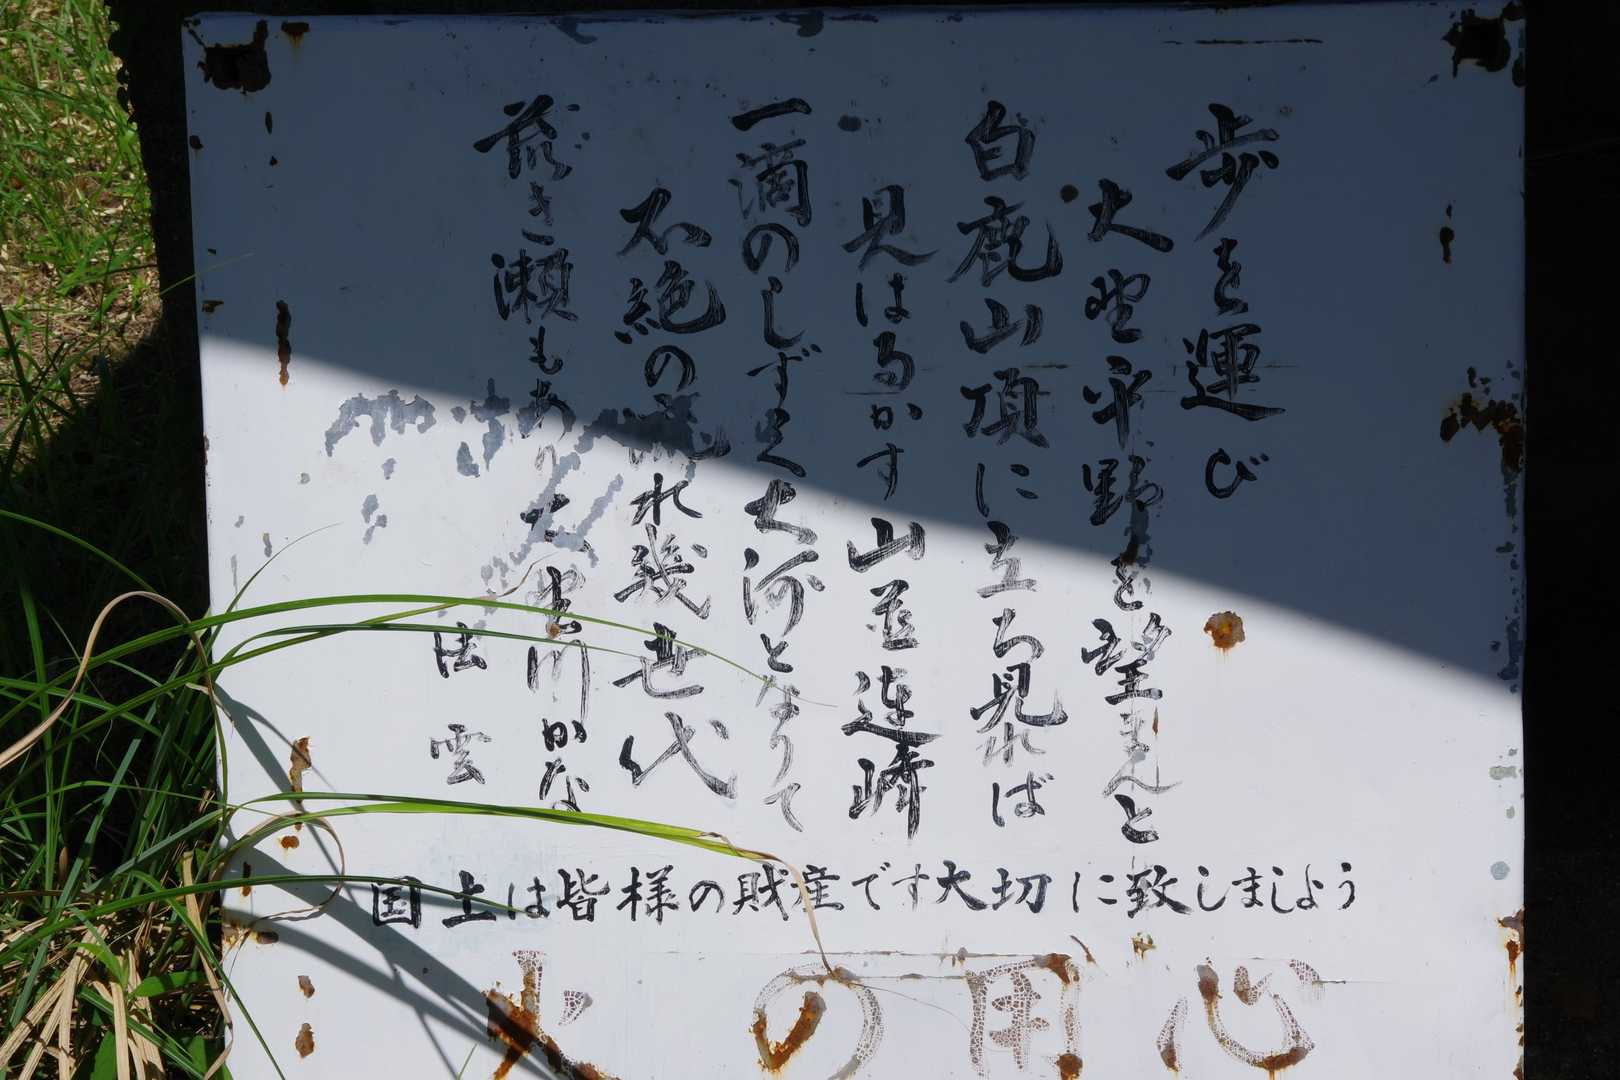 歩を運び
大野平野を望まんと
白鹿山頂に立ち見れば
見はるかす山並連峰
一滴のしずく大河となりて
不絶の流れ幾世代
荒き瀬もあり大野川かな
法雲
国土は皆様の財産です大切に致しましょう
火の用心